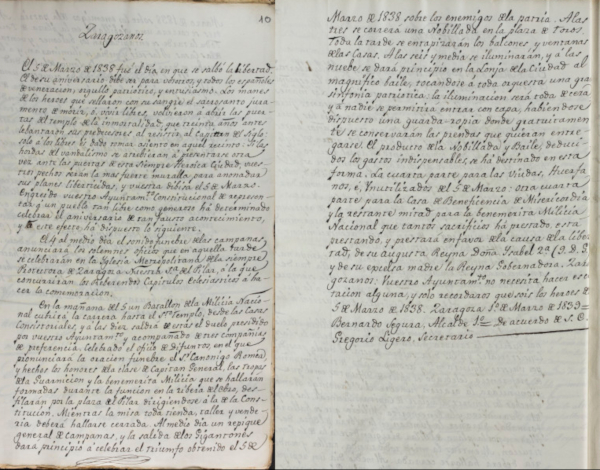 10
Zaragozanos.
El 5 de Marzo de 1838 fué el dia, en que se salbó la libertad.
El de su aniversario debe ser para vosotros y todos los españoles
de veneracion, orgullo patriotico, y entusiasmo. Los manes
de los heroes que sellaron con su sangre el sacrosanto jura-
mento de morir, ó vivir libres, volvieron á abrir las puer-
tas del templo de la inmortalidad, que treinta años antes
lebantaron sus predecesores al resistir al Capitan del Siglo,
solo á los libres es dado tomar asiento en aquel recinto. Si las
hordas del vandalismo se atrebieran á presentarse otra
vez ante los muros de esta Siempre Heroica Ciudad, vues-
tros pechos serán la mas fuerte muralla para anonadar
sus planes liberticidas, y vuestra debisa el 5 de Marzo.
Engreido vuestro Ayuntamto. Constitucional de represen-
tar á un pueblo tan libre como generoso ha determinado
celebrar el aniversario de tan fausto acontecimiento,
y á este efecto ha dispuesto lo siguiente.
El 4 al medio dia el sonido funebre de las campanas
anunciará los solemnes oficios que en aquella tarde
se celebrarán en la Iglesia Metropolitana de la siempre
Protectora de Zaragoza Nuestra Sra. del Pilar, á la que
concurrirán los Reberendos Capitulos Eclesiasticos á ha-
cer la conmemoracion.
En la mañana del 5 un Batallon de la Milicia Nacio-
nal cubrirá la carrera hasta el Sto. Templo, desde las Casas
Consistoriales, y á las diez saldrá de estas el duelo presidido
por vuestro Ayuntamto. y acompañado de tres compañias
de preferencia. Celebrado el oficio de Difuntos en el que
pronunciará la oracion funebre el Sr. Canonigo Romea
y hechos los honores de la clase de Capitan General, las tropas
de la Guarnicion y la benemerita Milicia que se hallarán
formadas durante la funcion en la ribera del Ebro, des-
filarán por la plaza del Pilar dirigiendose á la de la Cons-
titucion. Mientras la misa toda tienda, taller y vende-
ria deberá hallarse cerrada. Al medio dia un repique
general de campanas, y la salida de los Gigantones
dará principio á celebrar el triumfo obtenido el 5 de
Marzo de 1838 sobre los enemigos de la patria. A las
tres se correrá una Nobillada en la plaza de Toros.
Toda la tarde se entapizarán los balcones y ventanas
de las Casas. A las seis y media se iluminarán, y á las
nuebe se dará principio en la Lonja de la Ciudad al
magnifico baile, tocandose á toda orquesta una gran
sinfonia patriotica: la iluminacion será toda de cera
y á nadie se permitirá entrar con capa, habiendose
dispuesto una guarda-ropia donde gratuitamen-
te se conservarán las prendas que quieran entre-
garse. El producto de la Nobillada y Baile, deduci-
dos los gastos indispensables, se há destinado en esta
forma. La cuarta parte para las Viudas, Huerfa-
nos, é, Ynutilizados del 5 de Marzo: otra cuarta
parte para la Casa de Beneficencia de Misericordia
y la restante mitad para la benemerita Milicia
Nacional que tantos sacrificios há prestado, está
prestando, y prestará en favor de la causa de la liber-
tad, de su Augusta Reyna Doña Isabel 2ª. (Q. D. G.)
y de su excelsa madre la Reyna Gobernadora. Zara-
gozanos: Vuestro Ayuntamto. no necesita haceros es-
citacion alguna, y solo recordaros que sois los heroes del
5 de Marzo de 1838. Zaragoza 1º. de Marzo de 1839=
Bernardo Segura, Alcalde 1º.= De acuerdo de S. E.
Gregorio Ligero, Secretario